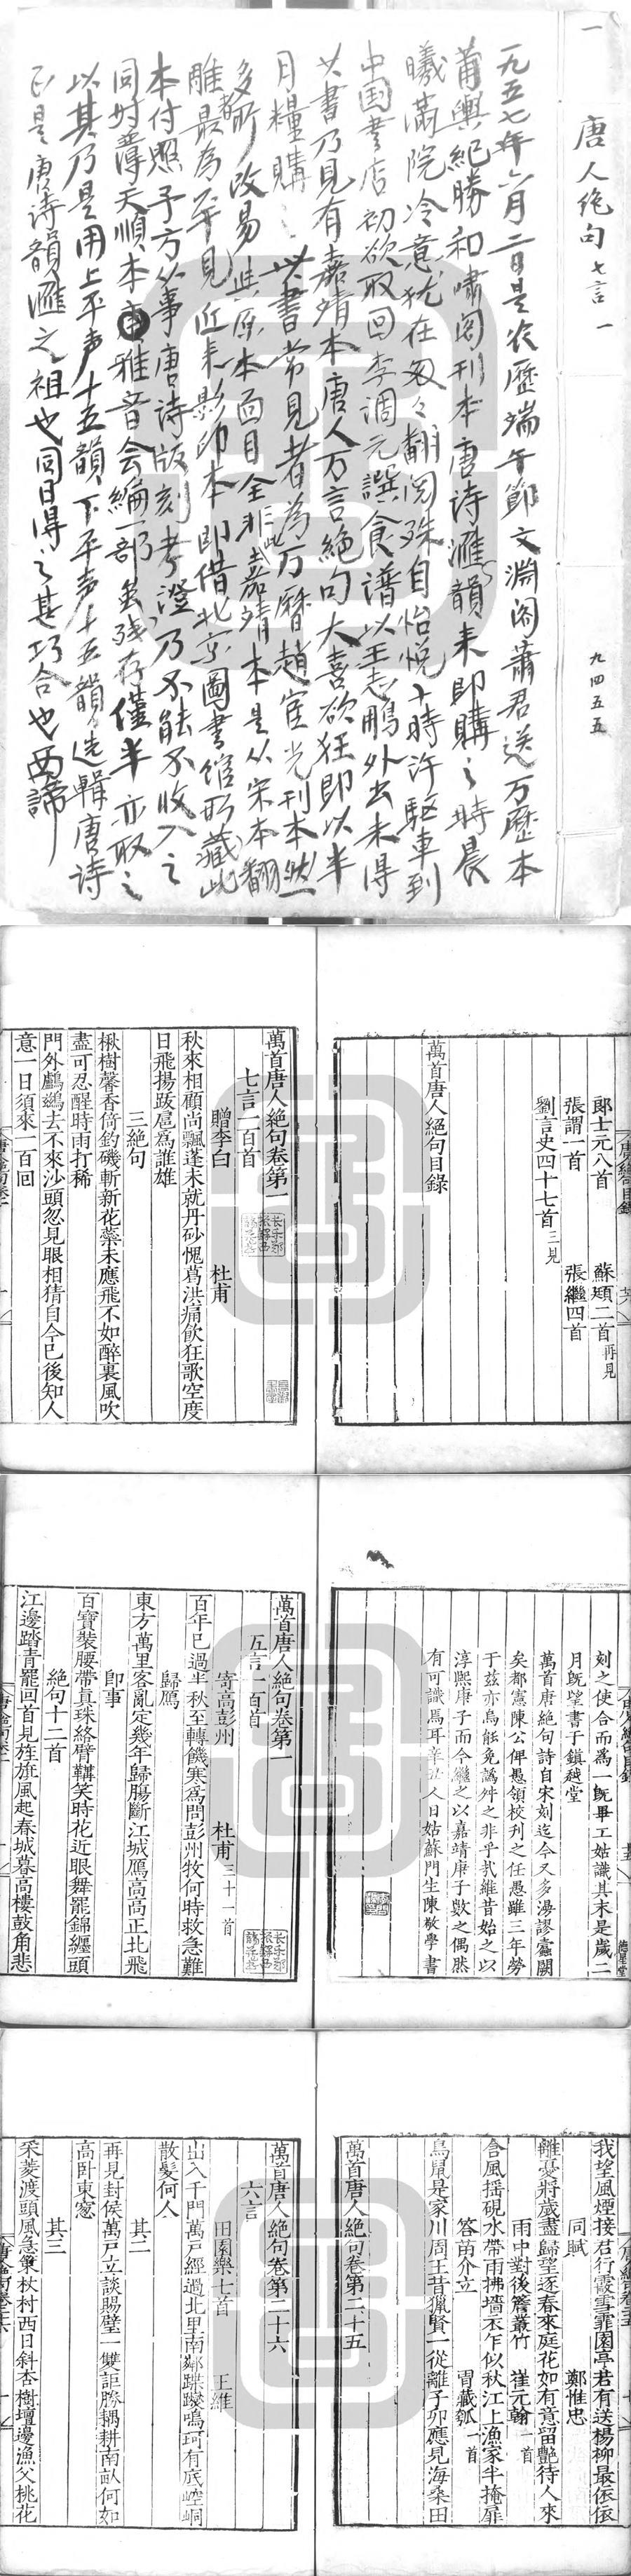 一
唐人绝句 七言 一
九四五五
一九五七年六月二日是农历端午節文渊阁蕭君送万历本
莆輿紀勝和嘯阁刊本唐诗滙韻来即購之時晨
曦滿院冷意犹在匆々翻阅殊自怡悦十時许驅車到
中国書店初欲取回李調元譔食譜以王志鵬外出未得
其書乃見有嘉靖本唐人万言絕句大喜欲狂即以半
月糧購之此書常見者為万曆趙宦光刊本然
多所改易與原本面目全非此嘉靖本是从宋本翻
雕最為罕見近来影印本即借北京圖書馆所藏此
本付照予方从事唐诗版刻考證乃不能不收入之
同时薄天順本雅音会編一部虽残存僅半亦取之
以其乃是用上平声十五韻下平声十五韻选輯唐诗
正是唐诗韻滙之祖也同日得之甚巧合也西諦
郎士元八首 蘇頲二首再見
張謂一首 張繼四首
劉言史四十七首三見
萬首唐人絕句目錄
萬首唐人絕句卷第一
七言一百首
贈李白 杜甫
秋來相顧尚飄蓬未就丹砂愧葛洪痛飲狂歌空度
日飛揚跋扈爲誰雄
三絕句
楸樹馨香倚釣磯斬新花蘂未應飛不如醉裏風吹
盡可忍醒時雨打稀
門外鸕鷀去不來沙頭忽見眼相猜自今已後知人
意一日須來一百回
刻之使合而爲一既畢工姑識其末是歲二
月旣望書于鎮越堂
萬首唐絕句詩自宋刻迄今又多漫謬蠹闕
矣都憲陳公俾愚領校刊之任愚雖三年勞
于茲亦烏能免譌舛之非乎弍維昔始之以
淳熙庚子而今繼之以嘉靖庚子數之偶然
有可識焉耳辛丑人日姑蘇門生陳敬學書
萬首唐人絕句卷第一
五言一百首
寄高彭州 杜甫三十一首
百年已過半秋至轉饑寒爲問彭州牧何時救急難
歸鴈
東方萬里客亂定幾年歸腸斷江城鴈高高正北飛
即事
百寶裝腰帶真珠絡臂鞲笑時花近眼舞罷錦纏頭
絕句十二首
江邊踏青罷回首見旌旗風起春城暮高樓鼓角悲
我望風煙接君行霰雪霏園亭若有送楊柳最依依
同賦 鄭惟忠
離憂將歲盡歸望逐春來庭花如有意留艷待人來
雨中對後簷叢竹 崔元翰一首
含風搖硯水帶雨拂墻衣乍似秋江上漁家半掩扉
答苗介立 胃藏瓠一首
鳥鼠是家川周王昔獵賢一從離子卯應見海桑田
萬首唐人絕句卷第二十五
萬首唐人絕句卷第二十六
六言
田園樂七首 王維
出入千門萬戶經過北里南鄰蹀躞鳴珂有底崆峒
散髮何人
其二
再見封侯萬戶立談賜璧一雙詎勝耦耕南畝何如
高卧東窻
其三
采菱渡頭風急策杖村西日斜杏樹壇邊漁父桃花